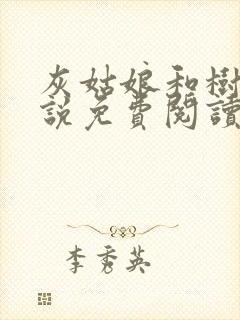 灰姑娘和樹
說免費閱讀
李秀英